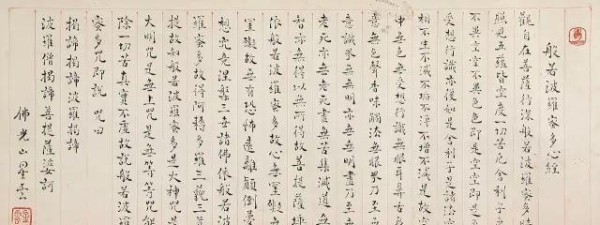 般若波羅蜜多心經
觀自在菩薩行深般若波羅蜜多時
照見五蘊皆空度一切苦厄舍利子
不異空空不異色色即是空空即是
受想行識亦復如是舍利子是諸法空
相不生不滅不垢不淨不增不減是故空
中無色無受想行識無眼耳鼻舌身
意無色聲香味觸法無眼界乃至無
意識界無無明亦無無明盡乃至無
老死亦無老死盡無苦集滅道無
智亦無得以無所得故菩提薩埵
依般若波羅蜜多故心無罣礙無
罣礙故無有恐怖遠離顛倒夢
想究竟涅槃三世諸佛依般若波
羅蜜多故得阿耨多羅三藐三菩
提故知般若波羅蜜多是大神咒是
大明咒是無上咒是無等等咒能
除一切苦真實不虛故說般若波羅
蜜多咒即說咒曰
揭諦揭諦波羅揭諦
波羅僧揭諦菩提薩婆訶
佛光山星雲